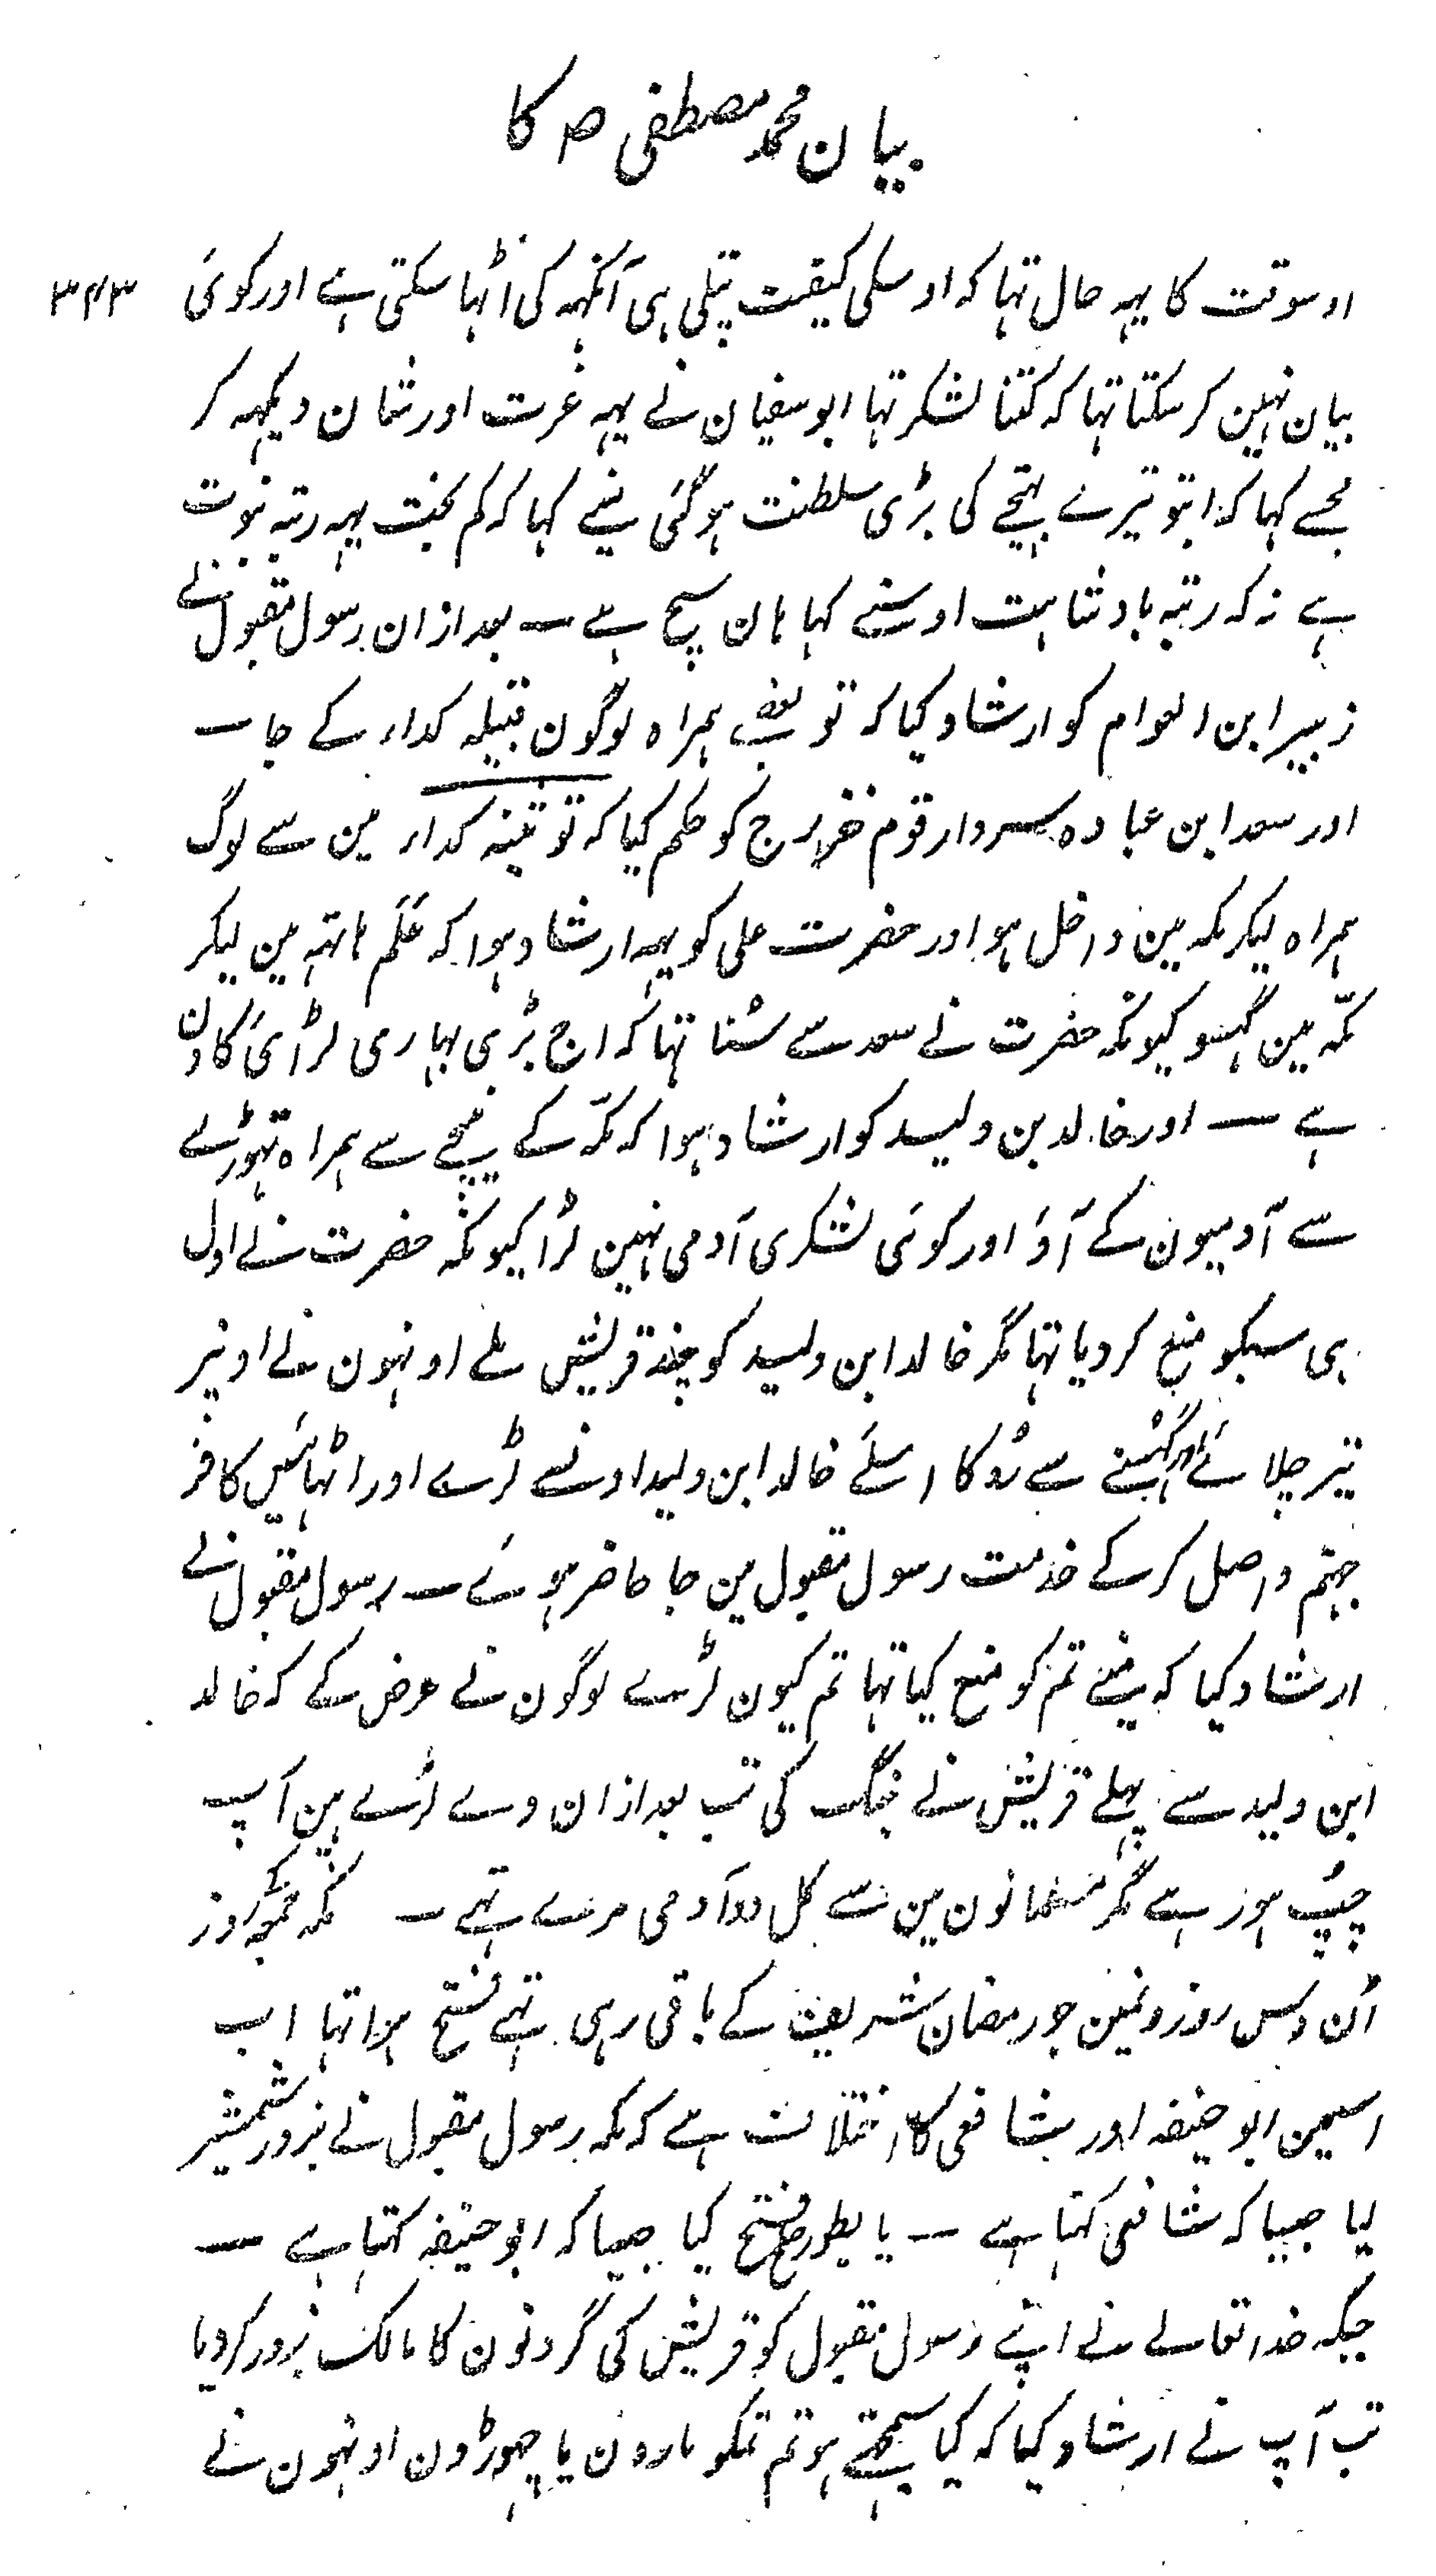 بیان محمد مصطفی ص کا
اوسوقت کا یہہ حال تہا کہ اوسکی کیفیت پتلی ہی آنکہہ کی اٹہا سکتی ہے اور کوئی ۳۴۳
بیان نہین کر سکتا تہا کہ کتنا لشکر تہا ابو سفیان نے یہہ عزت اور شان دیکہہ کر
مجسے کہا کہ ابتو تیرے بہتیجے کی بڑی سلطنت ہو گئی مینے کہا کہ کم بخت یہہ رتبہ نبوت
ہے نہ کہ رتبہ بادشاہت اوسنے کہا ہان سچ ہے — بعد ازان رسول مقبول نے
زبیر ابن العوام کو ارشاد کیا کہ تو بعضے ہمراہ لوگون قبیلہ کداء کے جا —
اور سعد ابن عبادہ سردار قوم خزرج کو حکم کیا کہ تو ثنیہ کداء مین سے لوگ
ہمراہ لیکر مکہ مین داخل ہو اور حضرت علی کو یہہ ارشاد ہوا کہ عَلَم ہاتہہ مین لیکر
مکّہ مین گہسو کیونکہ حضرت نے سعد سے سُنا تہا کہ اج بڑی بہاری لڑائی کا دن
ہے — اور خالد بن ولید کو ارشاد ہوا کہ مکّہ کے نیچے سے ہمراہ تہوڑے
سے آدمیون کے آؤ اور کوئی لشکری آدمی نہین لڑا کیونکہ حضرت نے اول
ہی سبکو منع کر دیا تہا مگر خالد ابن ولید کو چند قریش ملے اونہون نے اونپر
تیر چلائے اور گہسنے سے روکا اسلئے خالد ابن ولید اونسے لڑے اور اٹہائیس کافر
جہنم واصل کرکے خدمت رسول مقبول مین جا حاضر ہوئے — رسول مقبول نے
ارشاد کیا کہ مینے تمکو منع کیا تہا تم کیون لڑے لوگون نے عرض کے کہ خالد
ابن ولید سے پہلے قریش نے جنگ کی تب بعد ازان وے لڑے ہین آپ
چپ ہو رہے مگر مسلمانون مین سے کل دو آدمی مرے تہے — مکہ جمعہ کے روز
اُن دس روزونمین جو رمضان شریف کے باقی رہی تہے فتح ہوا تہا اب
اسمین ابو حنیفہ اور شافعی کا اختلاف ہے کہ مکہ رسول مقبول نے بزور شمشیر
لیا جیسا کہ شافعی کہتا ہے — یا بطور صلح فتح کیا جیسا کہ ابو حنیفہ کہتا ہے —
جبکہ خدا تعالے نے اپنے رسول مقبول کو قریش کی گردنون کا مالک بزور کر دیا
تب آپ نے ارشاد کیا کہ کیا سمجہتے ہو تم تمکو مارون یا چہوڑون اونہون نے